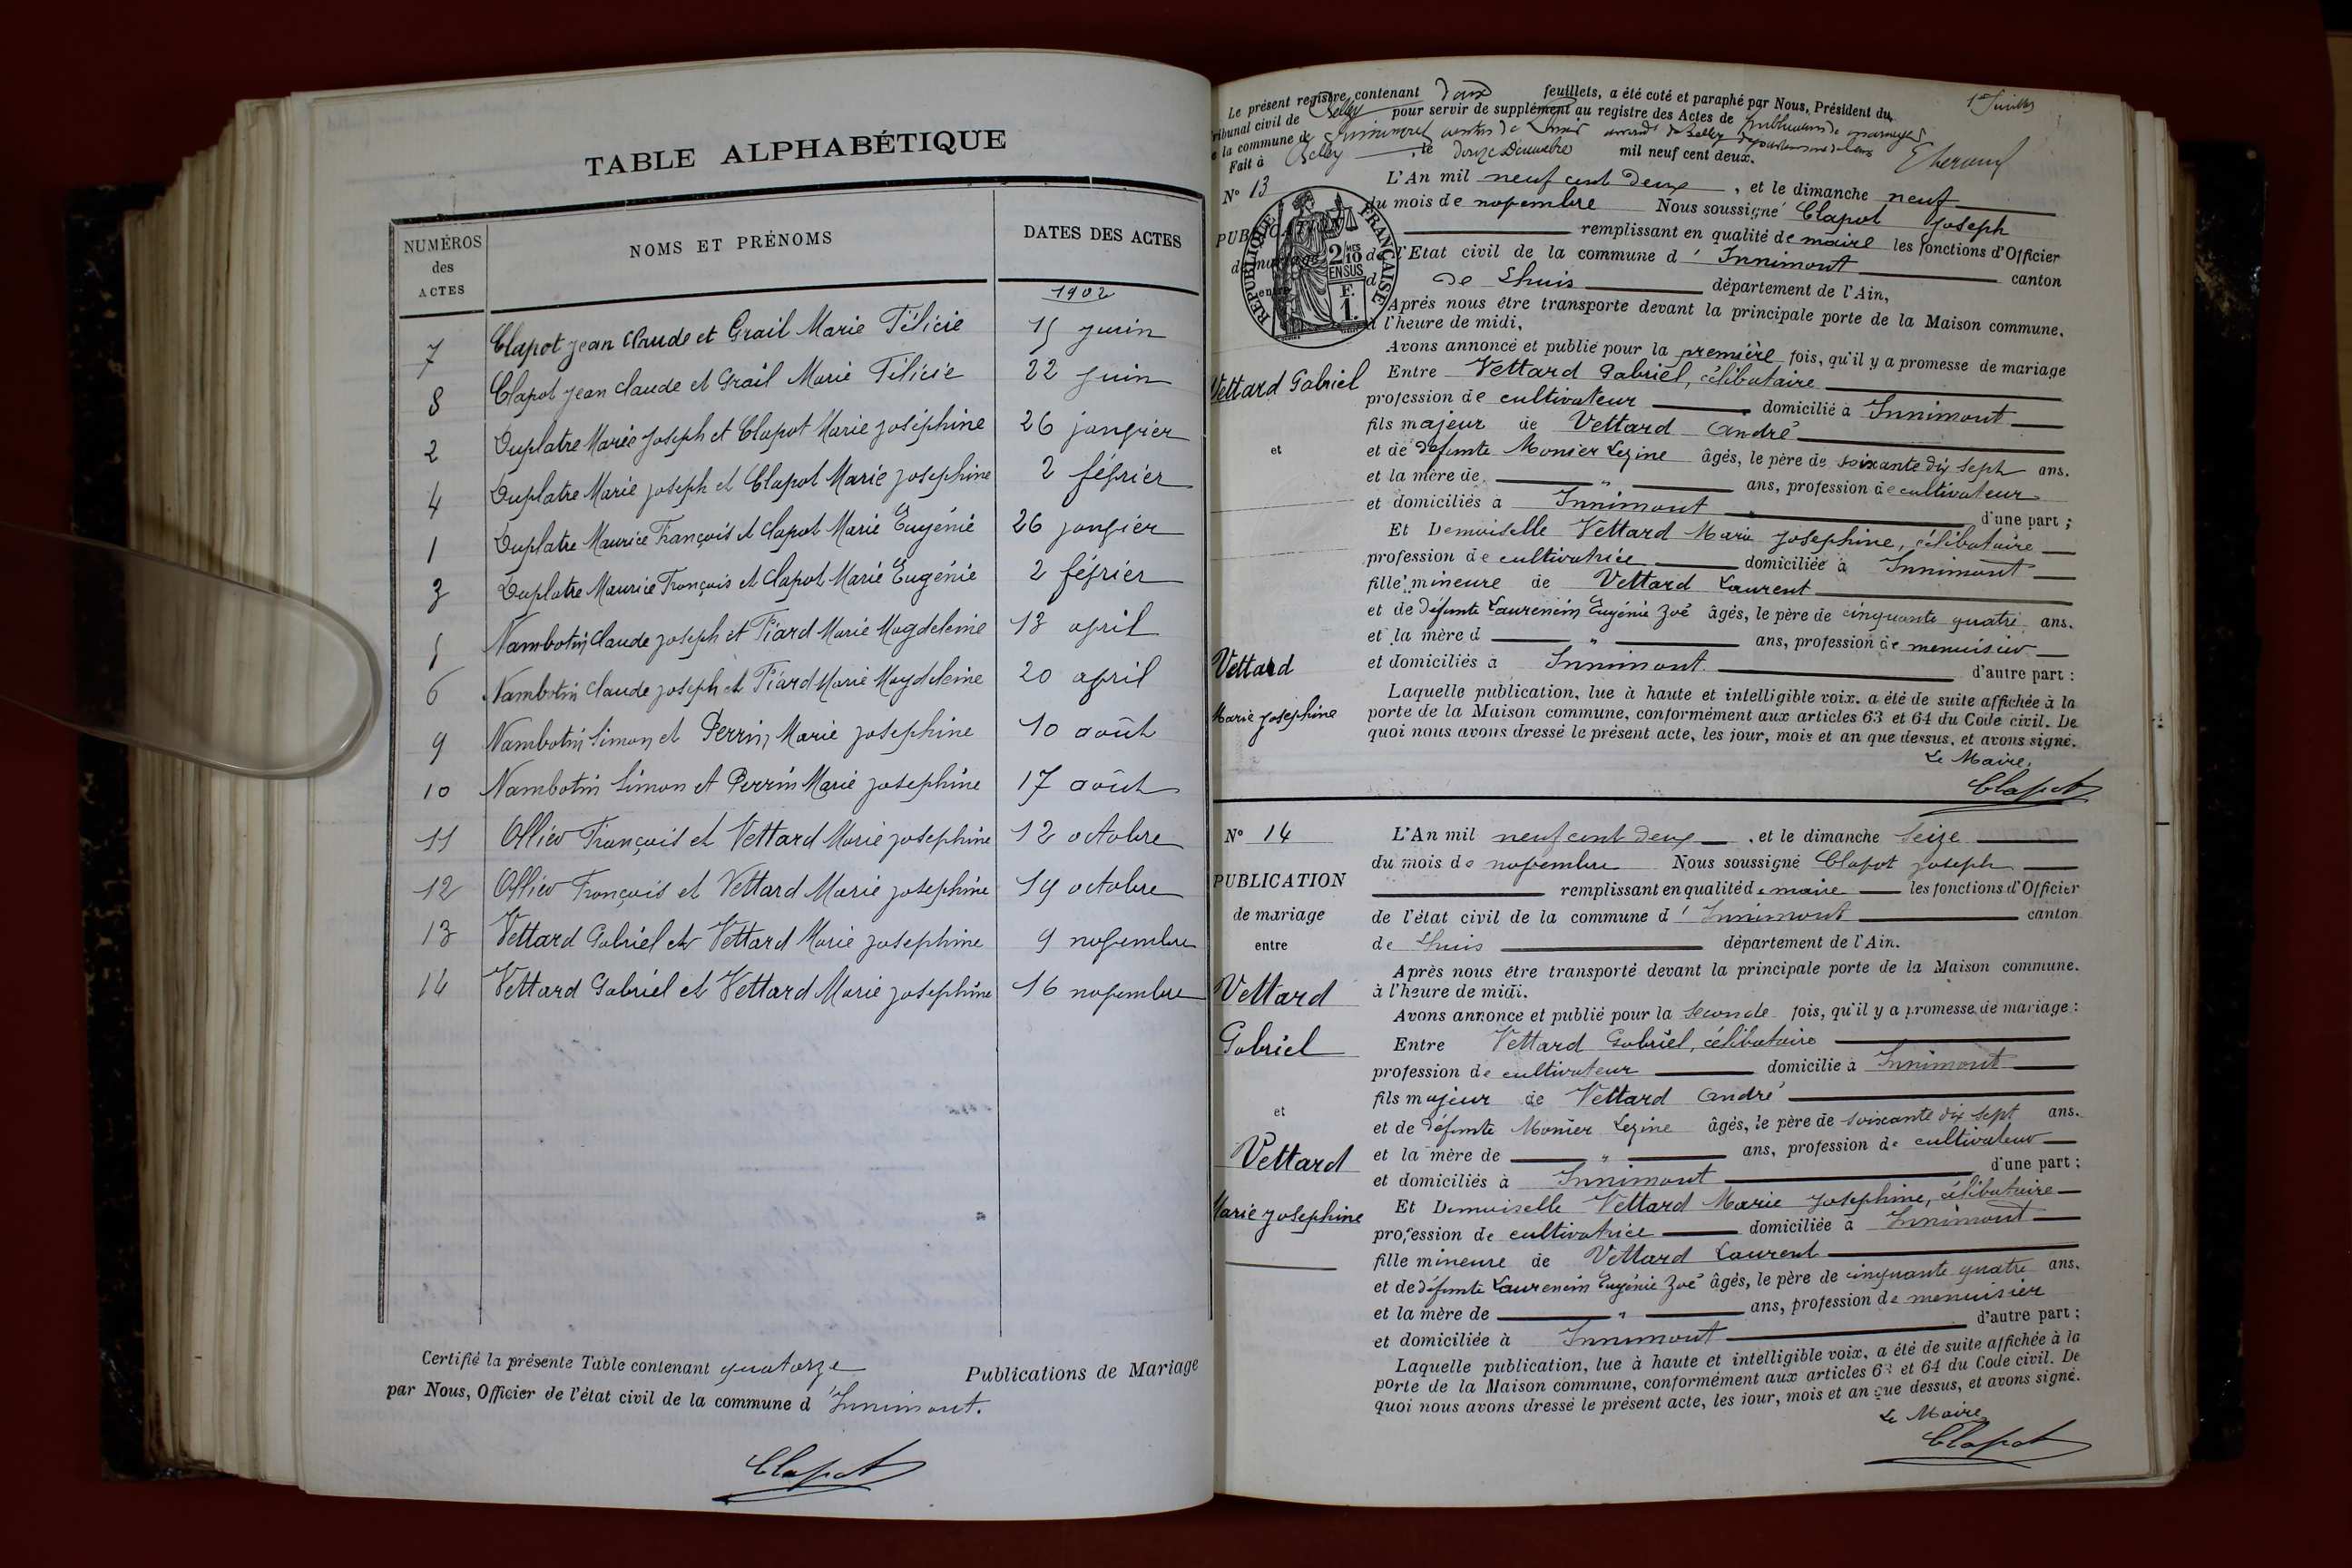 TABLE ALPHABÉTIQUE
NUMÉROS des ACTES
NOMS ET PRÉNOMS
DATES DES ACTES
1902
7 Clapot Jean Claude et Grail Marie Félicie 15 juin
8 Clapot Jean Claude et Grail Marie Félicie 22 juin
2 Duplatre Marie Joseph et Clapot Marie Joséphine 26 janvier
4 Duplatre Marie Joseph et Clapot Marie Joséphine 2 février
1 Duplatre Maurice François et Clapot Marie Eugénie 26 janvier
3 Duplatre Maurice François et Clapot Marie Eugénie 2 février
5 Nambotin Claude Joseph et Tiard Marie Magdeleine 13 avril
6 Nambotin Claude Joseph et Tiard Marie Magdeleine 20 avril
9 Nambotin Simon et Perrin Marie Joséphine 10 août
10 Nambotin Simon et Perrin Marie Joséphine 17 août
11 Ollier François et Vettard Marie Joséphine 12 octobre
12 Ollier François et Vettard Marie Joséphine 19 octobre
13 Vettard Gabriel et Vettard Marie Joséphine 9 novembre
14 Vettard Gabriel et Vettard Marie Joséphine 16 novembre
Certifié la présente Table contenant quatorze Publications de Mariage
par Nous, Officier de l'état civil de la commune d'Innimont.
Clapot
Le présent registre contenant deux feuillets, a été coté et paraphé par Nous, Président du
Tribunal civil de Belley pour servir de supplément au registre des Actes de publications de mariages
de la commune de Innimont canton de Lhuis arrondt de Belley
Fait à Belley, le douze Décembre mil neuf cent deux.
N° 13
PUBLICATION
de mariage
entre
RÉPUBLIQUE FRANÇAISE
2/10 EN SUS
F. 1.
Vettard Gabriel
et
Vettard
Marie Joséphine
L'An mil neuf cent deux, et le dimanche neuf
du mois de novembre Nous soussigné Clapot Joseph
remplissant en qualité de maire les fonctions d'Officier
de l'Etat civil de la commune d'Innimont canton
de Lhuis département de l'Ain,
Après nous être transporte devant la principale porte de la Maison commune,
à l'heure de midi,
Avons annoncé et publié pour la première fois, qu'il y a promesse de mariage
Entre Vettard Gabriel, célibataire
profession de cultivateur domicilié à Innimont
fils majeur de Vettard André
et de défunte Monier Lezine âgés, le père de soixante dix sept ans.
et la mère de " ans, profession de cultivateur
et domiciliés à Innimont d'une part ;
Et Demoiselle Vettard Marie Joséphine, célibataire
profession de cultivatrice domiciliée à Innimont
fille mineure de Vettard Laurent
et de défunte Laurencin Eugénie Zoé âgés, le père de cinquante quatre ans.
et la mère d " ans, profession de menuisier
et domiciliés à Innimont d'autre part :
Laquelle publication, lue à haute et intelligible voix, a été de suite affichée à la
porte de la Maison commune, conformément aux articles 63 et 64 du Code civil. De
quoi nous avons dressé le présent acte, les jour, mois et an que dessus, et avons signé.
Le Maire,
Clapot
N° 14
PUBLICATION
de mariage
entre
Vettard
Gabriel
et
Vettard
Marie Joséphine
L'An mil neuf cent deux, et le dimanche seize
du mois de novembre Nous soussigné Clapot Joseph
remplissant en qualité de maire les fonctions d'Officier
de l'état civil de la commune d'Innimont canton
de Lhuis département de l'Ain.
Après nous être transporté devant la principale porte de la Maison commune.
à l'heure de midi.
Avons annoncé et publié pour la seconde fois, qu'il y a promesse de mariage :
Entre Vettard Gabriel, célibataire
profession de cultivateur domicilie à Innimont
fils majeur de Vettard André
et de défunte Monier Lezine âgés, le père de soixante dix sept ans.
et la mère de " ans, profession de cultivateur
et domiciliés à Innimont d'une part ;
Et Demoiselle Vettard Marie Joséphine, célibataire
profession de cultivatrice domiciliée à Innimont
fille mineure de Vettard Laurent
et de défunte Laurencin Eugénie Zoé âgés, le père de cinquante quatre ans.
et la mère de " ans, profession de menuisier
et domiciliée à Innimont d'autre part ;
Laquelle publication, lue à haute et intelligible voix, a été de suite affichée à la
porte de la Maison commune, conformément aux articles 63 et 64 du Code civil. De
quoi nous avons dressé le présent acte, les jour, mois et an que dessus, et avons signé.
Le Maire
Clapot